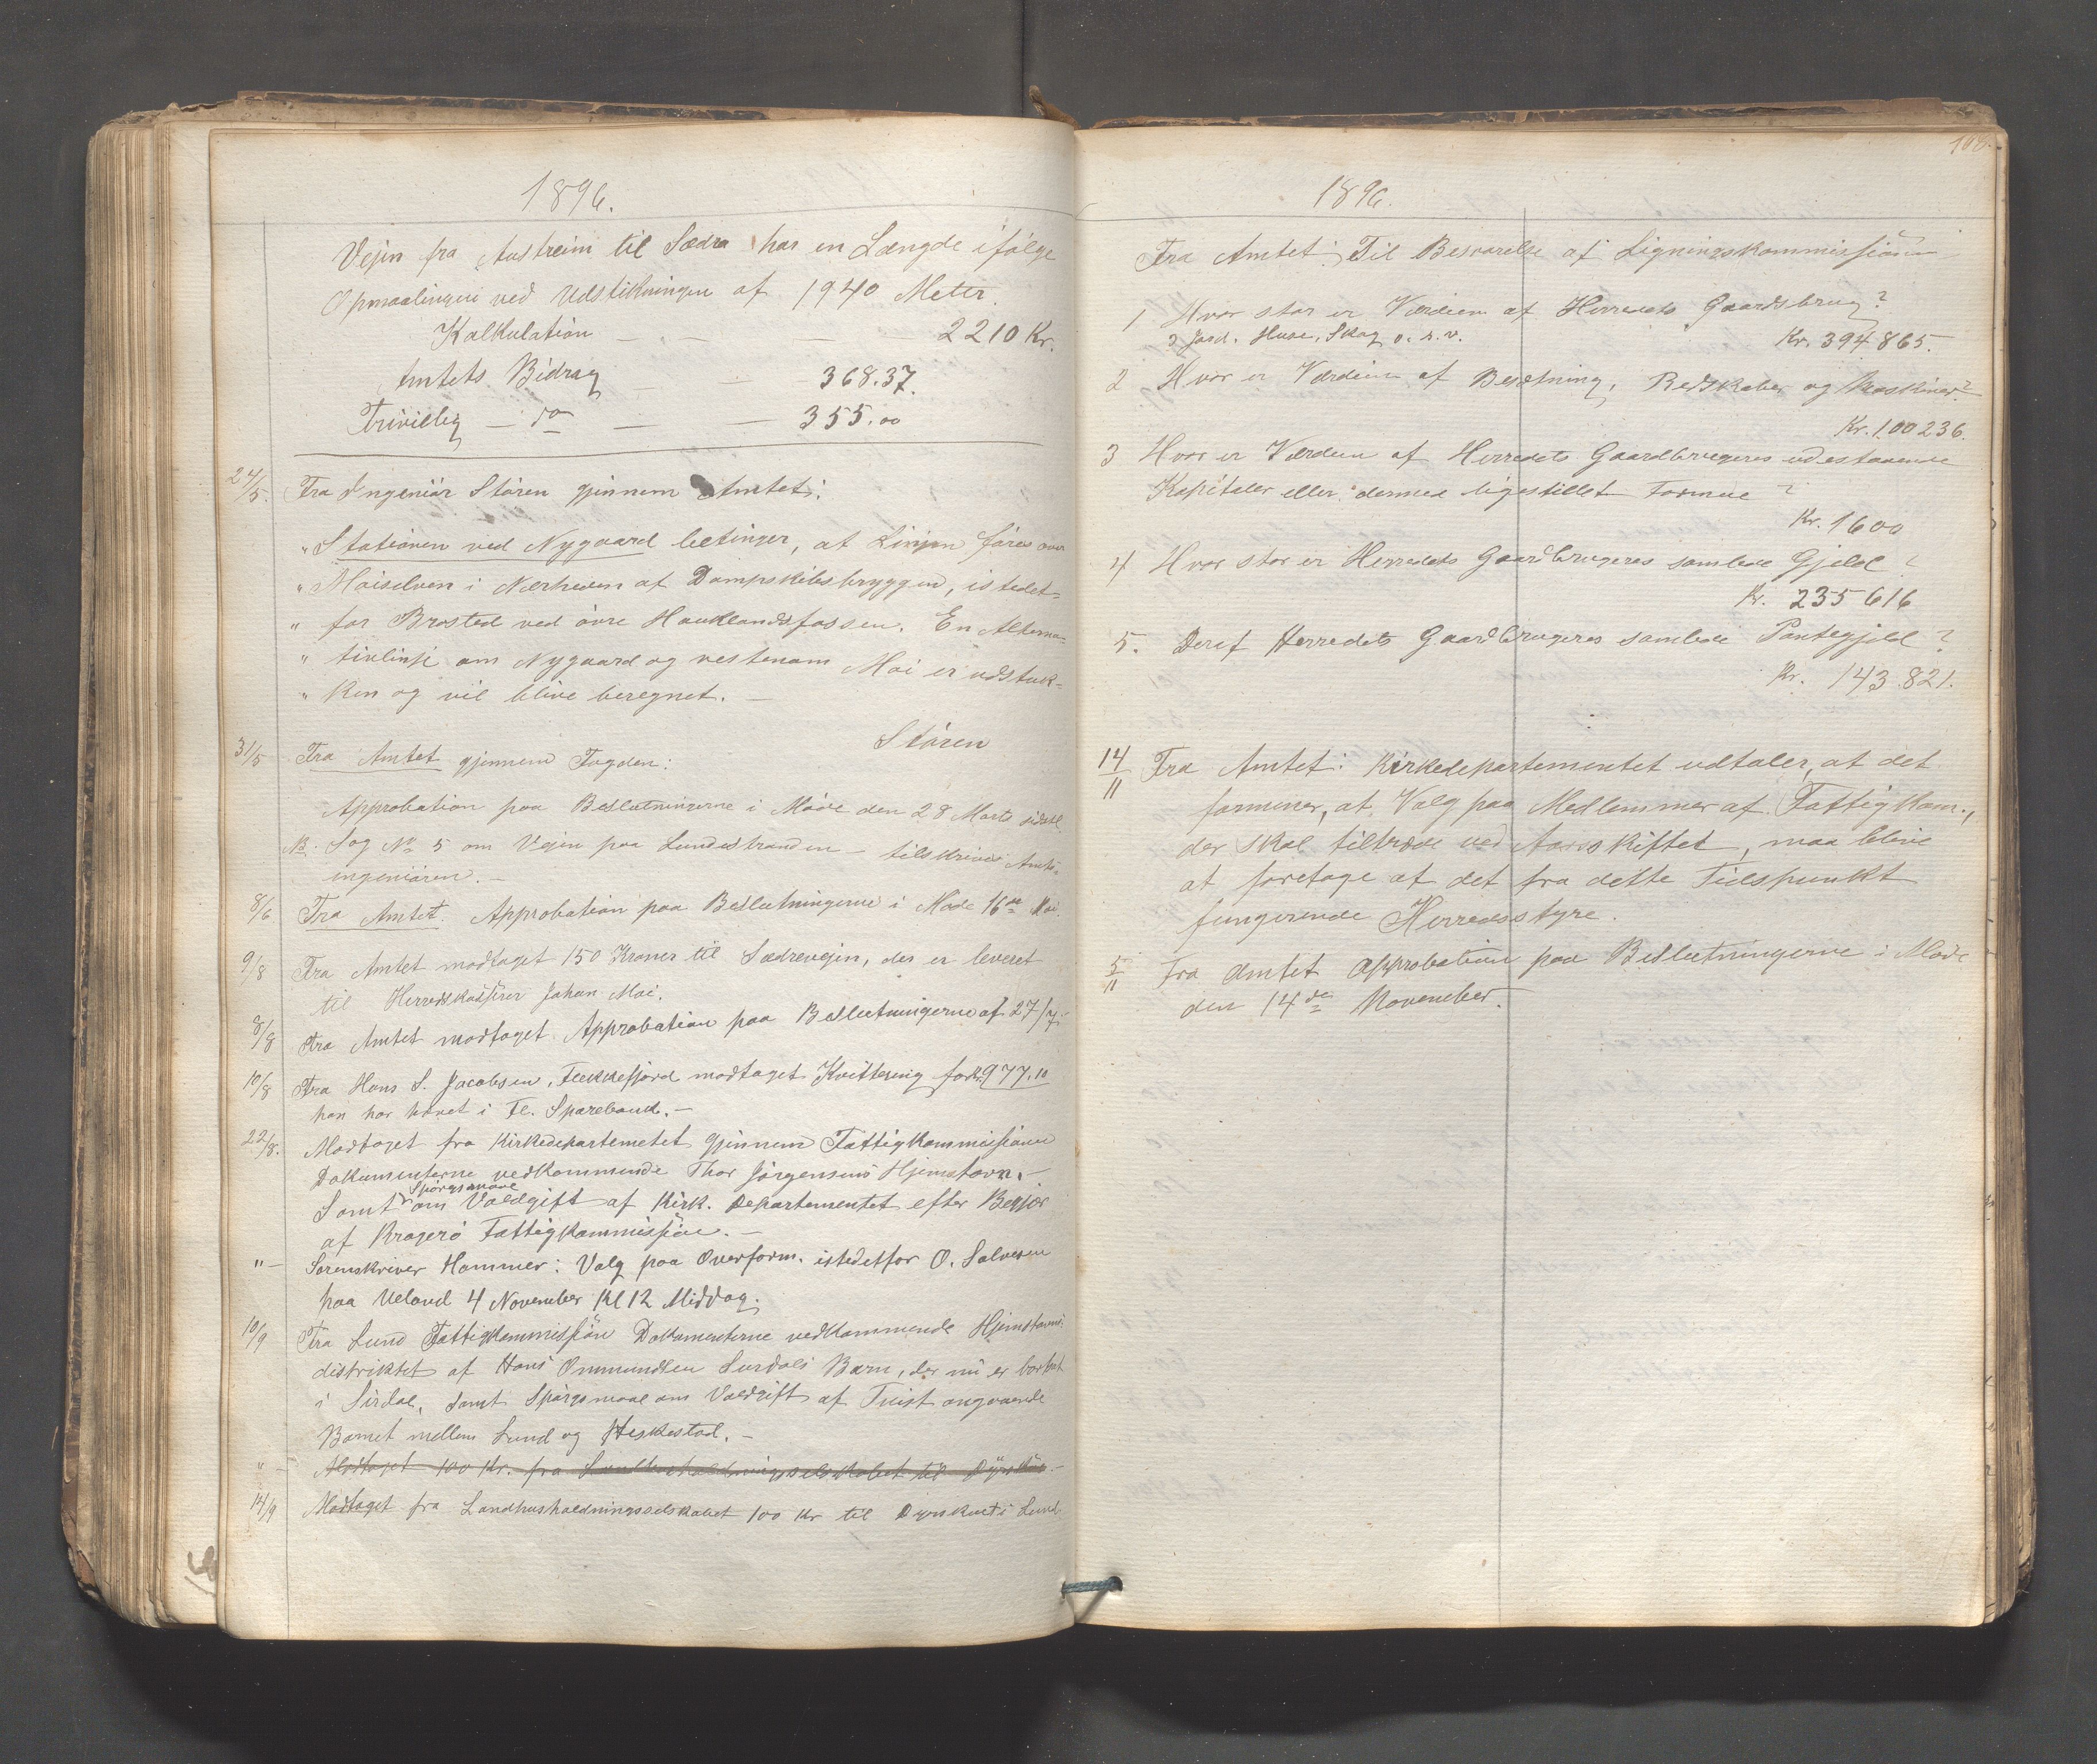 1896.
Vejen fra Austreim til Sædra har en Længde ifølge
Opmaalingen ved Udstikningen af 1940 Meter.
Kalkulation — — — 2210 Kr.
Amtets Bidrag — 368.37.
Frivillig — do — — 355.00
24/5. Fra Ingeniør Støren gjennem Amtet:
"Stationen ved Nygaard betinger, at Linjen føres over
"Moiselven i Nærheden af Dampskibsbryggen, istedet-
" for Brosted ved øvre Hauklandsfossen. En Alterna-
" tivlinje om Nygaard og vestenom Moi er udstuk-
" ken og vil blive beregnet. —
Støren
31/5 Fra Amtet gjennem Fogden:
Approbation paa Beslutningerne i Møde den 28 Marts sidstl.
NB. Sag No 5 om Vejen paa Lundestranden — tilskrives Amts-
ingeniøren. —
8/6 Fra Amtet. Approbation paa Beslutningerne i Møde 16de Mai.
9/8 Fra Amtet modtaget 150 Kroner til Sædrevejen, der er leveret
til Herredskasserer Johan Moi.
8/8 Fra Amtet modtaget Approbation paa Beslutningerne af 27/7.
10/8 Fra Hans S. Jacobsen, Flekkefjord modtaget Kvittering for Kr. 977.10
han har hævet i Fl. Sparebank. —
22/8. Modtaget fra Kirkedepartemetet gjennem Fattigkommissionen
Dokumenterne vedkommende Thor Jørgensens Hjemstavn. —
Samt Spørgsmaal om Voldgift af Kirk. Departementet efter Begjær
af Kragerø Fattigkommission. —
" — Sorenskriver Hammer: Valg paa Overform. istedetfor O. Salvesen
paa Ueland 4 November Kl 12 Middag.
10/9 Fra Lund Fattigkommission Dokumenterne vedkommende Hjemstavns-
distriktet af Hans Ommundsen Surdals Barn, der nu er bortsat
i Sirdal, samt Spørgsmaal om Voldgift af Tvist angaaende
Barnet mellem Lund og Heskestad. —
" — Modtaget 100 Kr. fra Landhusholdningsselskabet til Dyrskue. —
14/9 Modtaget fra Landhusholdningsselskabet 100 Kr til Dyrskuet i Lund.
1896.
Fra Amtet: Til Besvarelse af Ligningskommissionen
1 Hvor stor er Værdien af Herredets Gaardsbrug?
Jord, Huse, Skog o. s. v. Kr. 394865.
2 Hvor er Værdien af Besætning, Redskaber og Maskiner?
Kr. 100236.
3 Hvor er Værdien af Herredets Gaardbrugeres udestaaende
Kapitaler eller dermed ligestillet Formue?
Kr. 1600
4 Hvor stor er Herredets Gaardbrugeres samlede Gjeld?
Kr. 235616
5. Deraf Herredets Gaardbrugeres samlede Pantegjeld?
Kr. 143.821.
14/11 Fra Amtet: Kirkedepartementet udtaler, at det
formener, at Valg paa Medlemmer af Fattigkom.,
der skal tiltræde ved Aarsskiftet, maa blive
at foretage af det fra dette Tidspunkt
fungerende Herredsstyre.
5/11 Fra Amtet Approbation paa Beslutningerne i Møde
den 14de November.